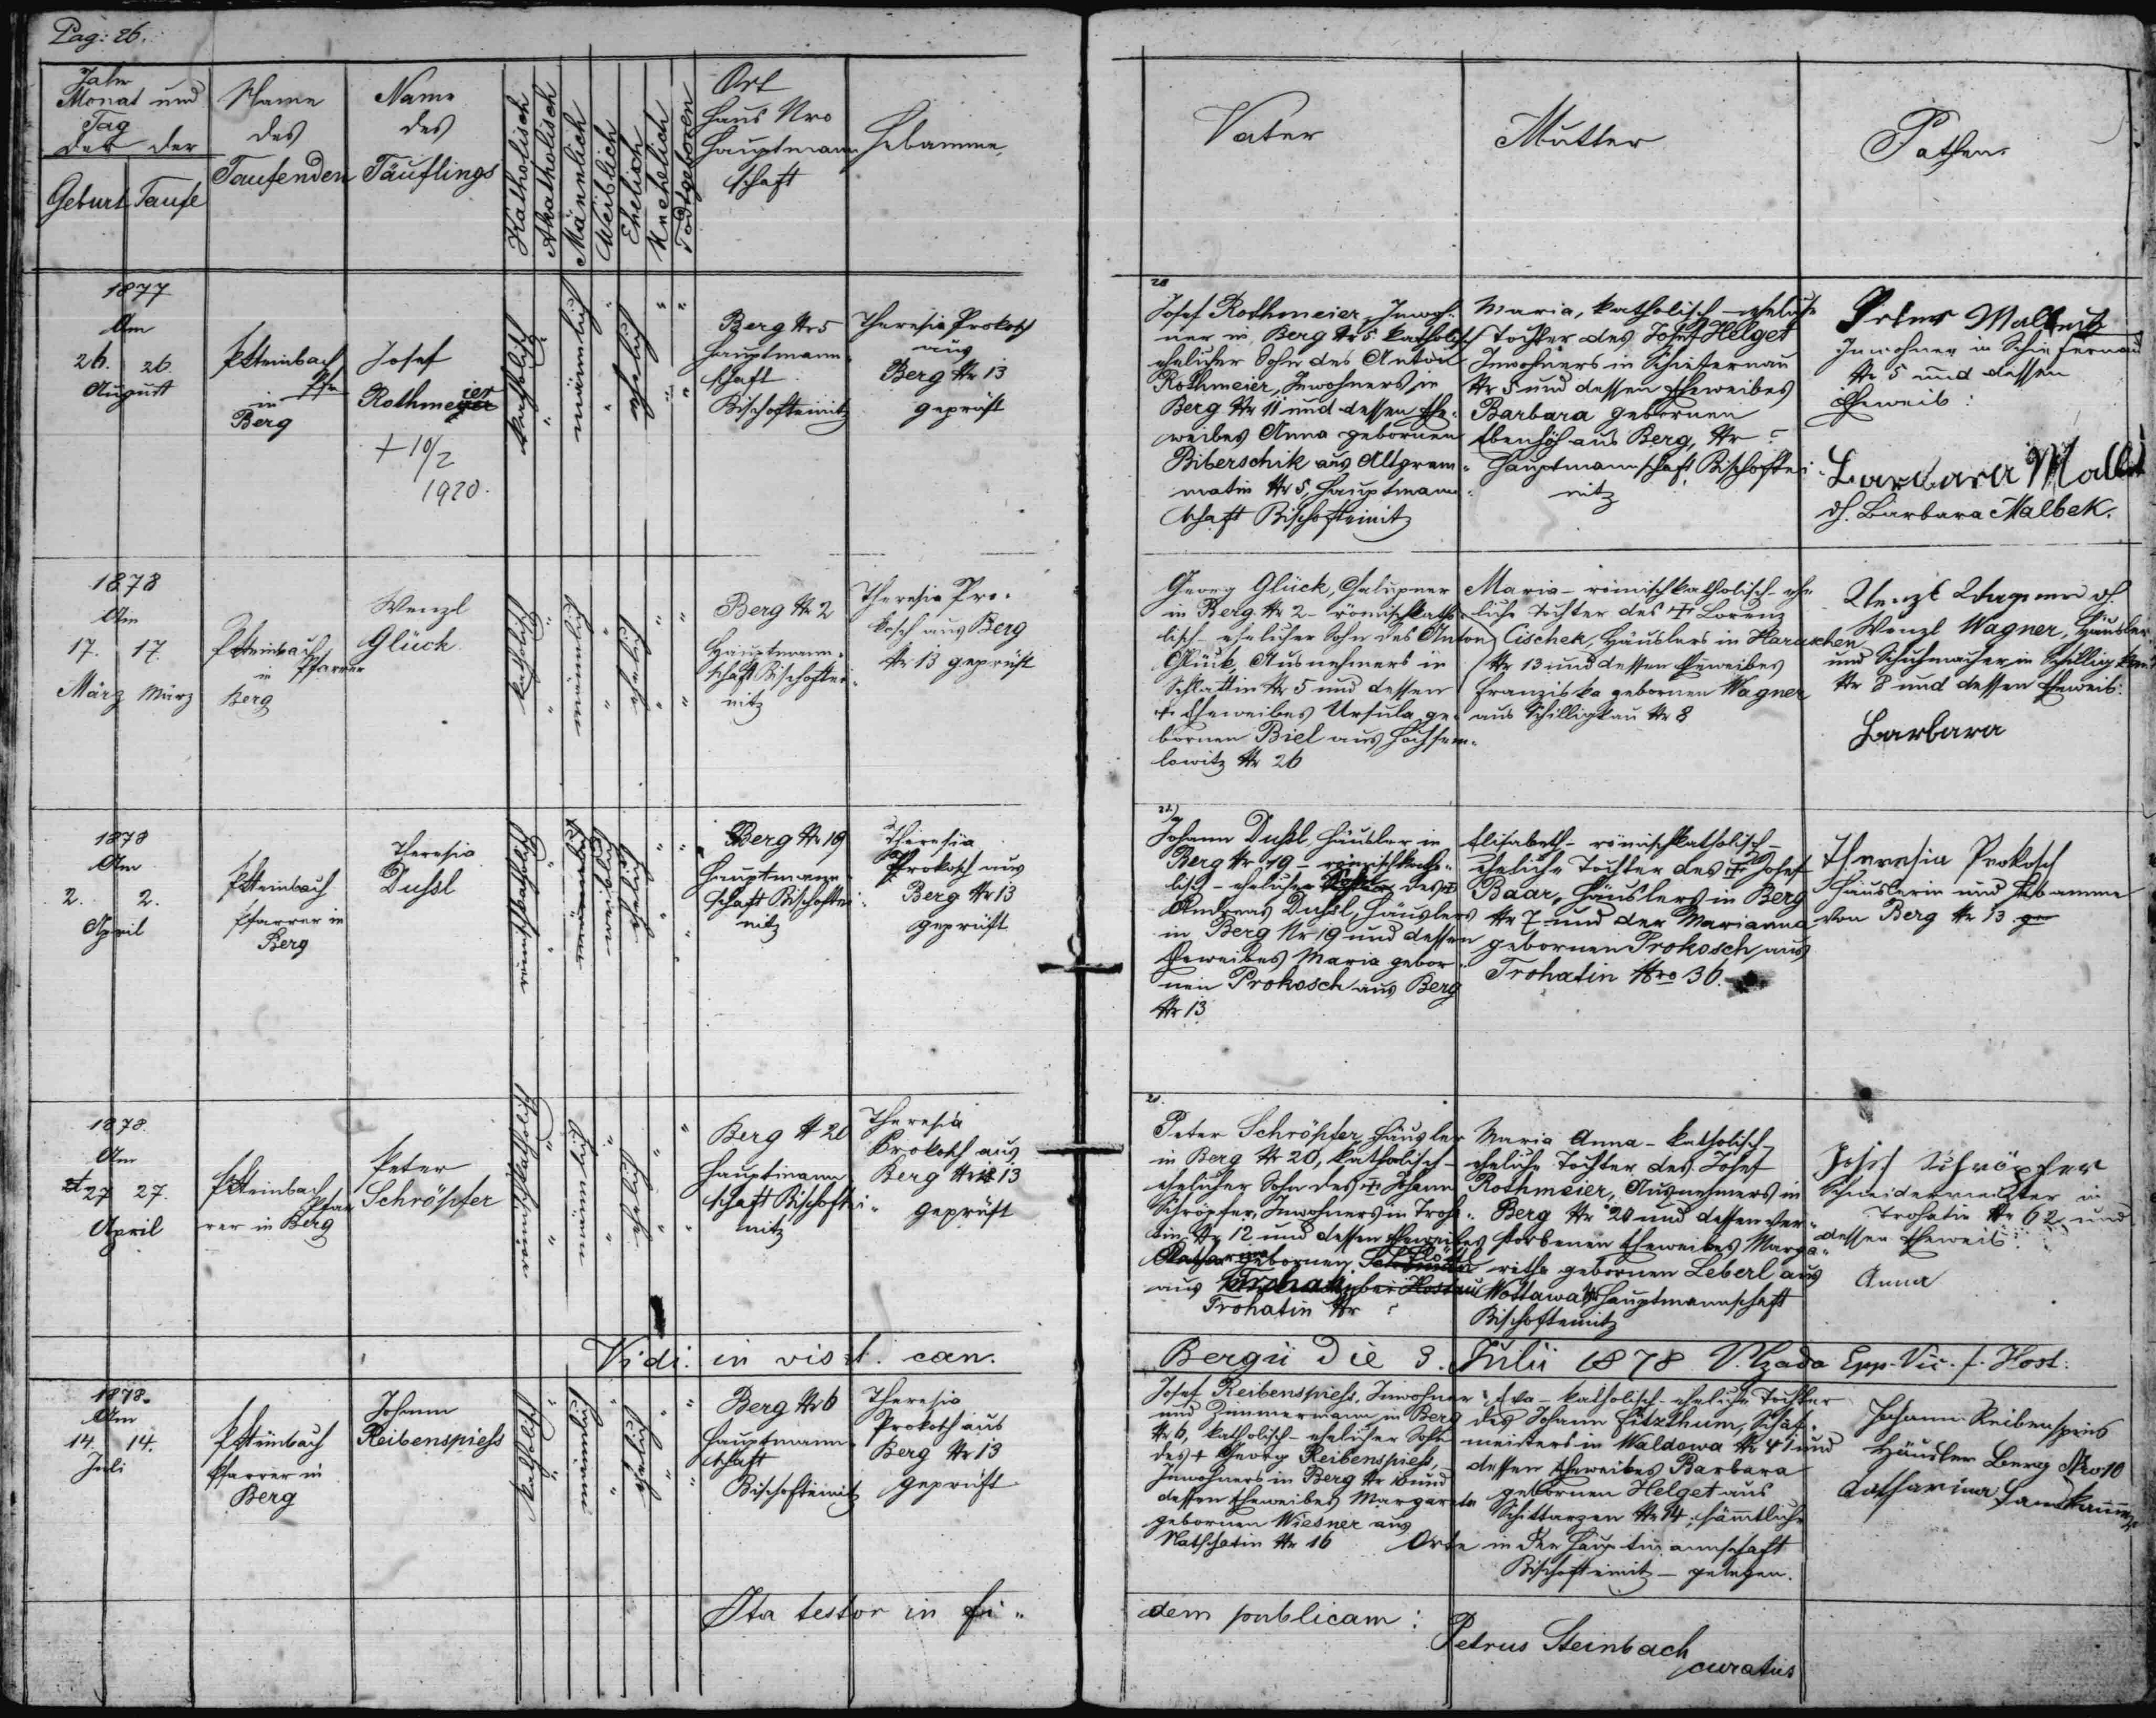 Pag: 26.
Jahr
Monat und
Tag
der der
Geburt Taufe
Name
des
Taufenden
Name
des
Täuflings
Katholisch
Akatholisch
Männlich
Weiblich
Ehelich
Unehelich
Todtgeboren
Ort
Haus Nro
Hauptmann
schaft
Hebamme
Vater
Mutter
Pathen
1877
Am
26. 26.
August
PSteinbach
Pfr
in
Berg
Josef
Rothmeier
+ 10/2
1920.
katholisch
männlich
ehelich
Berg Nr 5
Hauptmann-
schaft
Bischofteinitz
Theresia Prokosch
aus
Berg Nr 13
geprüft
Josef Rothmeier, Inwoh-
ner in Berg Nr 5. katholisch
ehelicher Sohn des Anton
Rothmeier, Inwohners in
Berg Nr 11 und dessen Ehe-
weibes Anna gebornen
Biberschik aus Altgram-
matin Nr 5, Hauptmann-
schaft Bischofteinitz
Maria, katholisch – eheliche
Tochter des Josef Helget
Inwohners in Schiefernau
Nr 5 und dessen Eheweibes
Barbara gebornen
Ebenhöh aus Berg, Nr ?
Hauptmannschaft Bischoftei-
nitz
Peter Malbek
Inwohner in Schiefernau
Nr 5 und dessen
Eheweib:
Barbara Malbek
d. Barbara Malbek.
1878
Am
17. 17.
März März
PSteinbach
Pfarrer
in
Berg
Wenzl
Glück
katholisch
männlich
ehelich
Berg Nr 2
Hauptmann-
schaft Bischoftei-
nitz
Theresia Pro-
kosch aus Berg
Nr 13 geprüft
Georg Glück, Chalupner
in Berg Nr 2 – römischkatho-
lisch – ehelicher Sohn des Anton
Glück, Ausnehmers in
Schlattin Nr 5 und dessen
+ Eheweibes Ursula ge-
bornen Biel aus Hochsem-
lowitz Nr 26
Maria – römischkatholisch – ehe
liche Tochter des + Lorenz
Cischek, Häuslers in Haraschen
Nr 13 und dessen Eheweibes
Franziska gebornen Wagner
aus Schilligkau Nr 8
Wenzl Wagner d
Wenzl Wagner, Häusler
und Schuhmacher in Schilligkau
Nr 8 und dessen Eheweib:
Barbara
1878
Am
2. 2.
April
PSteinbach
Pfarrer in
Berg
Theresia
Dußl
römischkatholisch
männlich
weiblich
ehelich
Berg Nr 19
Hauptmann-
schaft Bischoftei-
nitz
Theresia
Prokosch aus
Berg Nr 13
geprüft
22.)
Johann Dußl, Häusler in
Berg Nr 19 – römischkatho-
lisch – ehelicher Sohn des +
Andreas Dußl, Häuslers
in Berg Nr 19 und dessen
Eheweibes Maria gebor-
nen Prokosch aus Berg
Nr 13
Elisabeth – römischkatholisch –
eheliche Tochter des + Josef
Baar, Häuslers in Berg
Nr 7 und der Marianna
gebornen Prokosch aus
Trohatin Nro 36.
Theresia Prokosch
Häuslerin und Hebamme
von Berg Nr 13 ge
1878.
Am
27 27.
April
PSteinbach
Pfar
rer in Berg
Peter
Schröpfer
römischkatholisch
männlich
ehelich
Berg N 20
Hauptmann
schaft Bischoftei-
nitz
Theresia
Prokosch aus
Berg Nr 13
geprüft
21.
Peter Schröpfer, Häusler
in Berg Nr 20, katholisch –
ehelicher Sohn des + Johann
Schröpfer, Inwohners in Troha-
tin Nr 12 und dessen Eheweibes
gebornen
aus Trohatin bei Hostau
Trohatin Nr ?
Maria Anna – katholisch –
eheliche Tochter des Josef
Rothmeier, Ausnehmers in
Berg Nr 20 und dessen ver-
storbenen Eheweibes Marga-
retha gebornen Leberl aus
Wottawa Hauptmannschaft
Bischofteinitz
Josef Schröpfer
Schneidermeister in
Trohatin Nr 62 und
dessen Eheweib:
Anna
Vidi. in visit. can. Bergii Die 3. Julii 1878 V. Czada Epp. Vic. f. Host:
1878.
Am
14. 14.
Juli
PSteinbach
Pfarrer in
Berg
Johann
Reibenspieß
katholisch
männlich
ehelich
Berg Nr 6
Hauptmann-
schaft
Bischofteinitz
Theresia
Prokosch aus
Berg Nr 13
geprüft
Josef Reibenspieß, Inwohner
und Zimmermann in Berg
Nr 6, katholisch – ehelicher Sohn
des + Georg Reibenspieß,
Inwohners in Berg Nr 10 und
dessen Eheweibes Margareta
gebornen Wiesner aus
Natschatin Nr 16
Eva – katholisch – eheliche Tochter
des Johann Fitzthum, Schaf-
meisters in Waldowa Nr 41 und
dessen Eheweibes Barbara
gebornen Helget aus
Schittarzen Nr 14, sämtliche
Orte in der Hauptmannschaft
Bischofteinitz – gelegen.
Johann Reibenspies
Häusler Berg Nro 10
Katharina
Ita testor in fi- dem publicam:
Petrus Steinbach
curatus